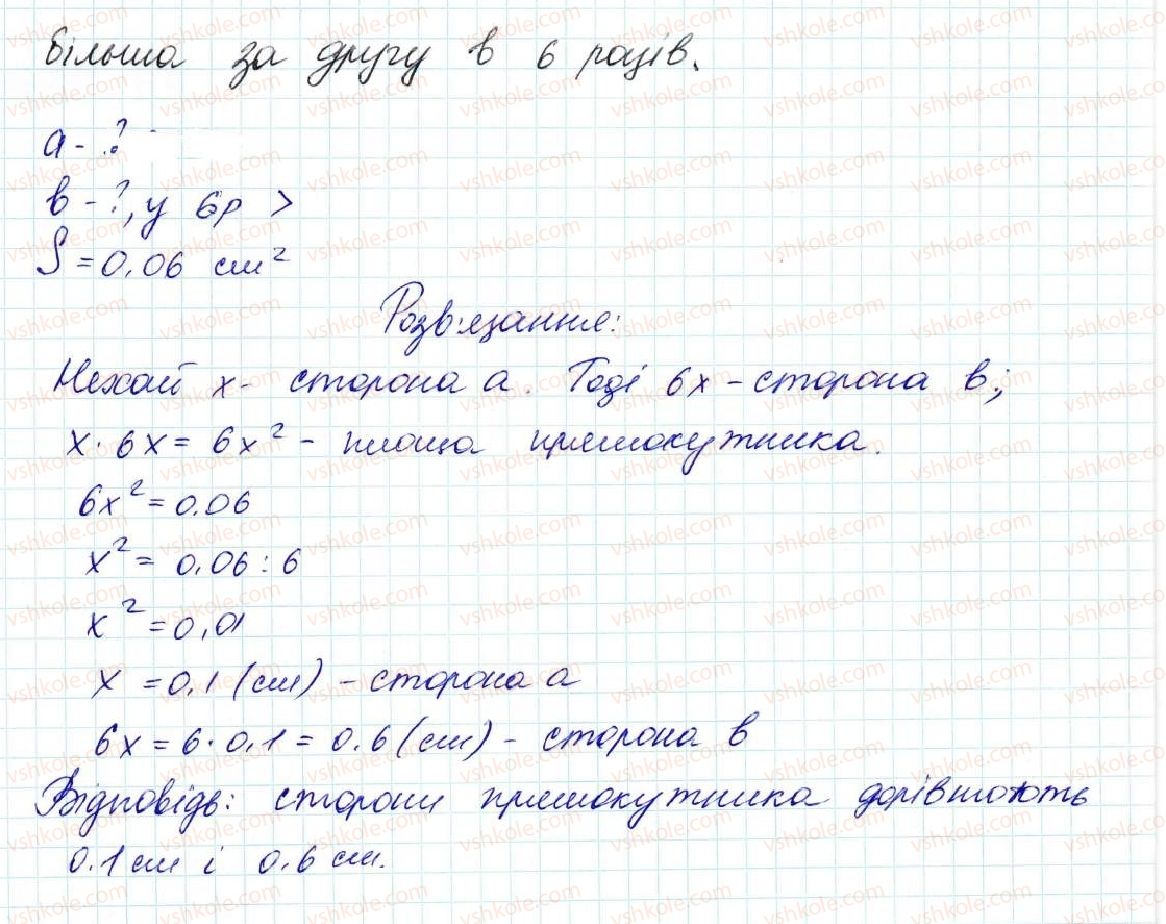 більша за другу в 6 разів.
a - ?
в - ?, у 6р >
S = 0,06 см²
Розв'язання:
Нехай x - сторона a. Тоді 6x - сторона в;
x · 6x = 6x² - площа прямокутника.
6x² = 0,06
x² = 0,06 : 6
x² = 0,01
x = 0,1 (см) - сторона a
6x = 6 · 0,1 = 0,6 (см) - сторона в
Відповідь: сторони прямокутника дорівнюють
0,1 см і 0,6 см.
vshkole.com